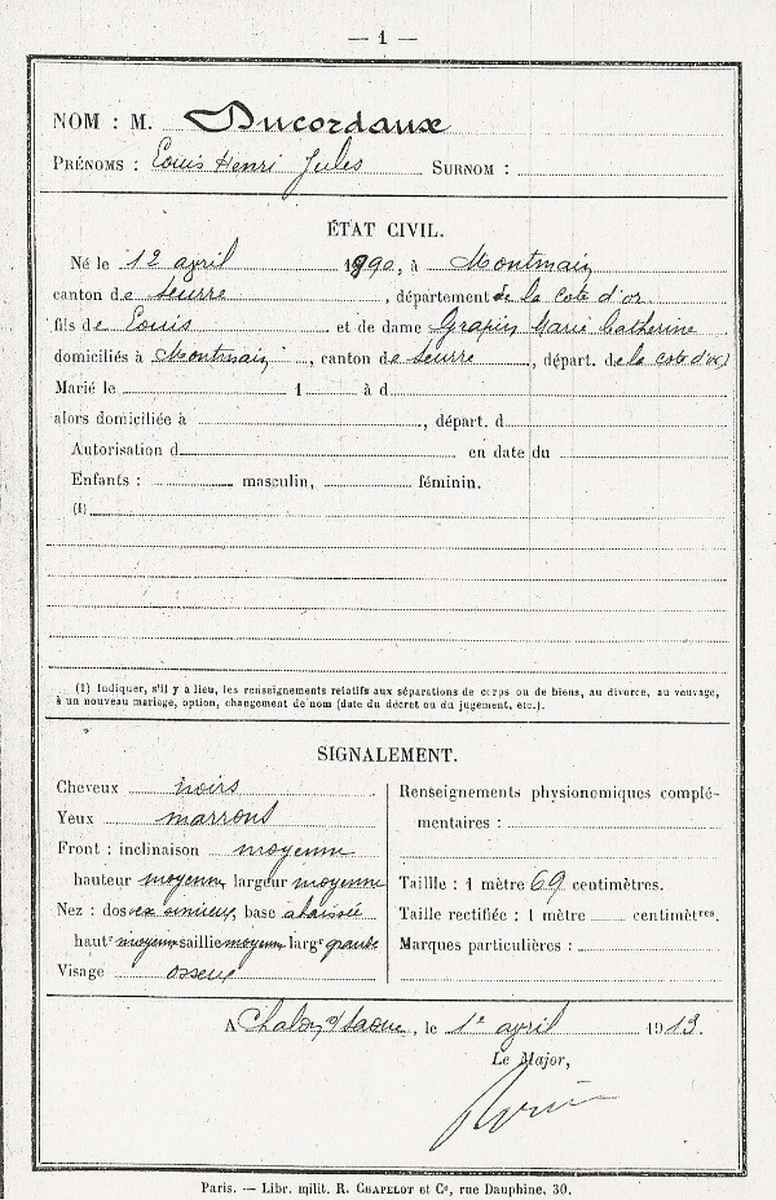 — 1 —
NOM : M. Ducordaux
PRÉNOMS : Louis Henri Jules SURNOM :
ÉTAT CIVIL.
Né le 12 avril 1890, à Montmain
canton de Seurre, département de la cote d'or
fils de Louis et de dame Grapin Marie Catherine
domiciliés à Montmain, canton de Seurre, départ. de la cote d'or
Marié le 1 à d
alors domiciliée à , départ. d
Autorisation d en date du
Enfants : masculin, féminin.
(1)
(1) Indiquer, s'il y a lieu, les renseignements relatifs aux séparations de corps ou de biens, au divorce, au veuvage,
à un nouveau mariage, option, changement de nom (date du décret ou du jugement, etc.).
SIGNALEMENT.
Cheveux noirs
Yeux marrons
Front : inclinaison moyenne
hauteur moyenne largeur moyenne
Nez : dos vex sinueux base abaissée
hautr moyenne saillie moyenne largr grande
Visage osseux
Renseignements physionomiques complé-
mentaires :
Taillle : 1 mètre 69 centimètres.
Taille rectifiée : 1 mètre centimètres.
Marques particulières :
A Chalon s/ Saone, le 1er avril 1913.
Le Major,
Paris. — Libr. milit. R. CHAPELOT et Ce, rue Dauphine, 30.